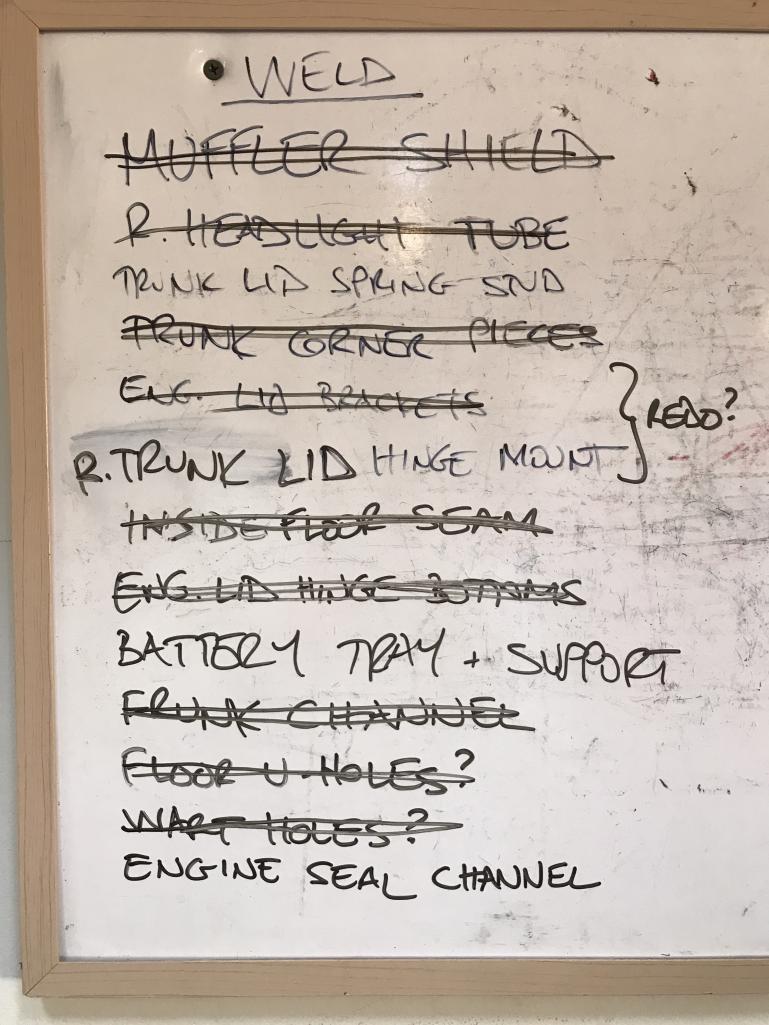 WELD
MUFFLER SHIELD
R. HEADLIGHT TUBE
TRUNK LID SPRING STUD
TRUNK CORNER PIECES
ENG. LID BRACKETS
REDO?
R. TRUNK LID HINGE MOUNT
INSIDE FLOOR SEAM
ENG. LID HINGE BOTTOMS
BATTERY TRAY + SUPPORT
FRUNK CHANNEL
FLOOR U-HOLES?
WART HOLES?
ENGINE SEAL CHANNEL